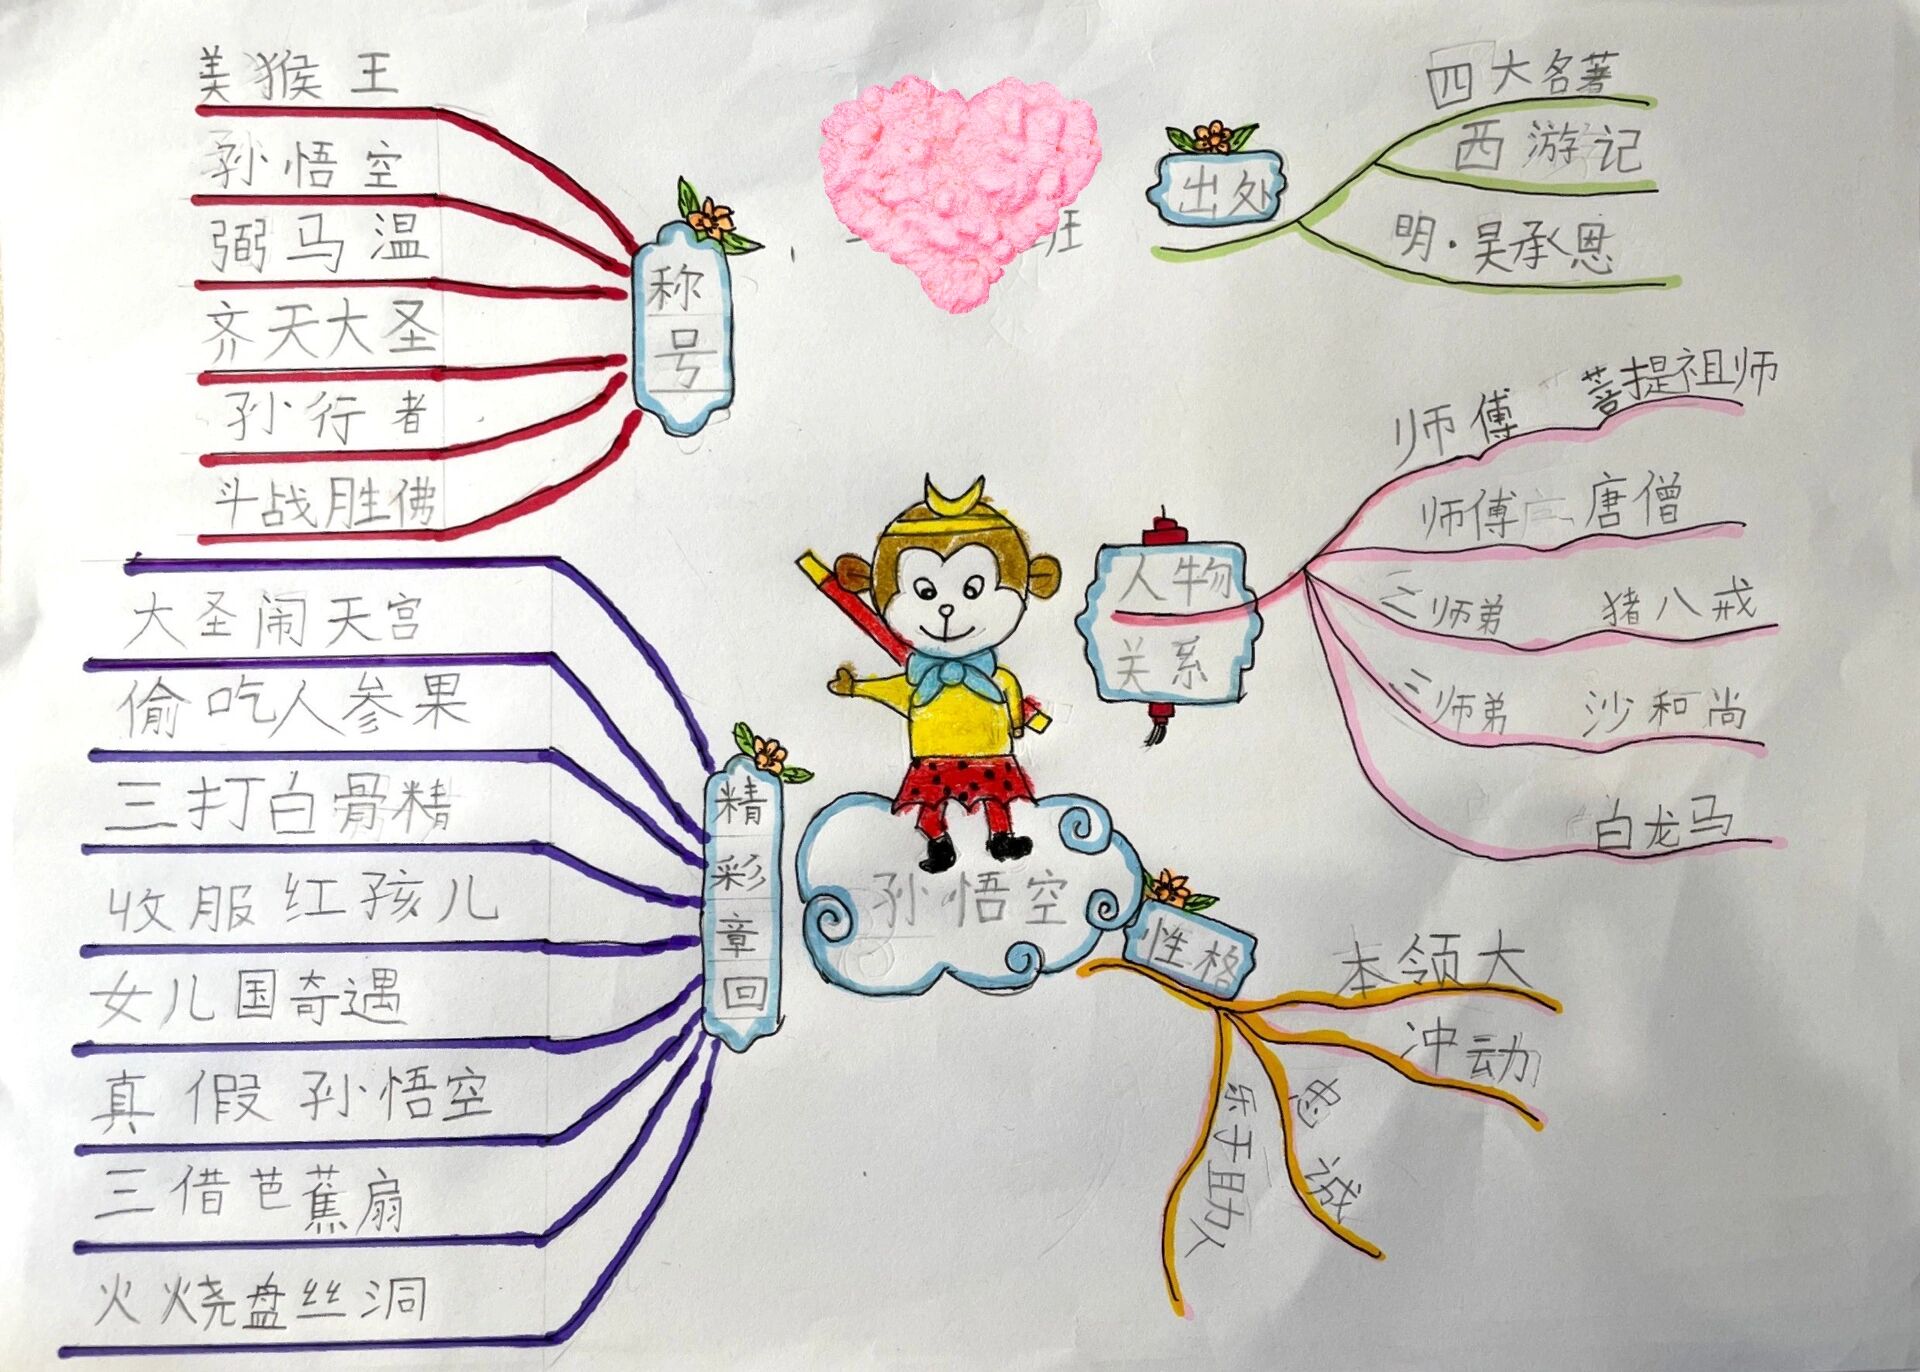 美猴王
孙悟空
弼马温
齐天大圣
孙行者
斗战胜佛
称号
班
出处
四大名著
西游记
明·吴承恩
人物
关系
师傅 菩提祖师
师傅 唐僧
二师弟 猪八戒
三师弟 沙和尚
白龙马
大圣闹天宫
偷吃人参果
三打白骨精
收服红孩儿
女儿国奇遇
真假孙悟空
三借芭蕉扇
火烧盘丝洞
精彩章回
孙悟空
性格
本领大
冲动
忠诚
乐于助人